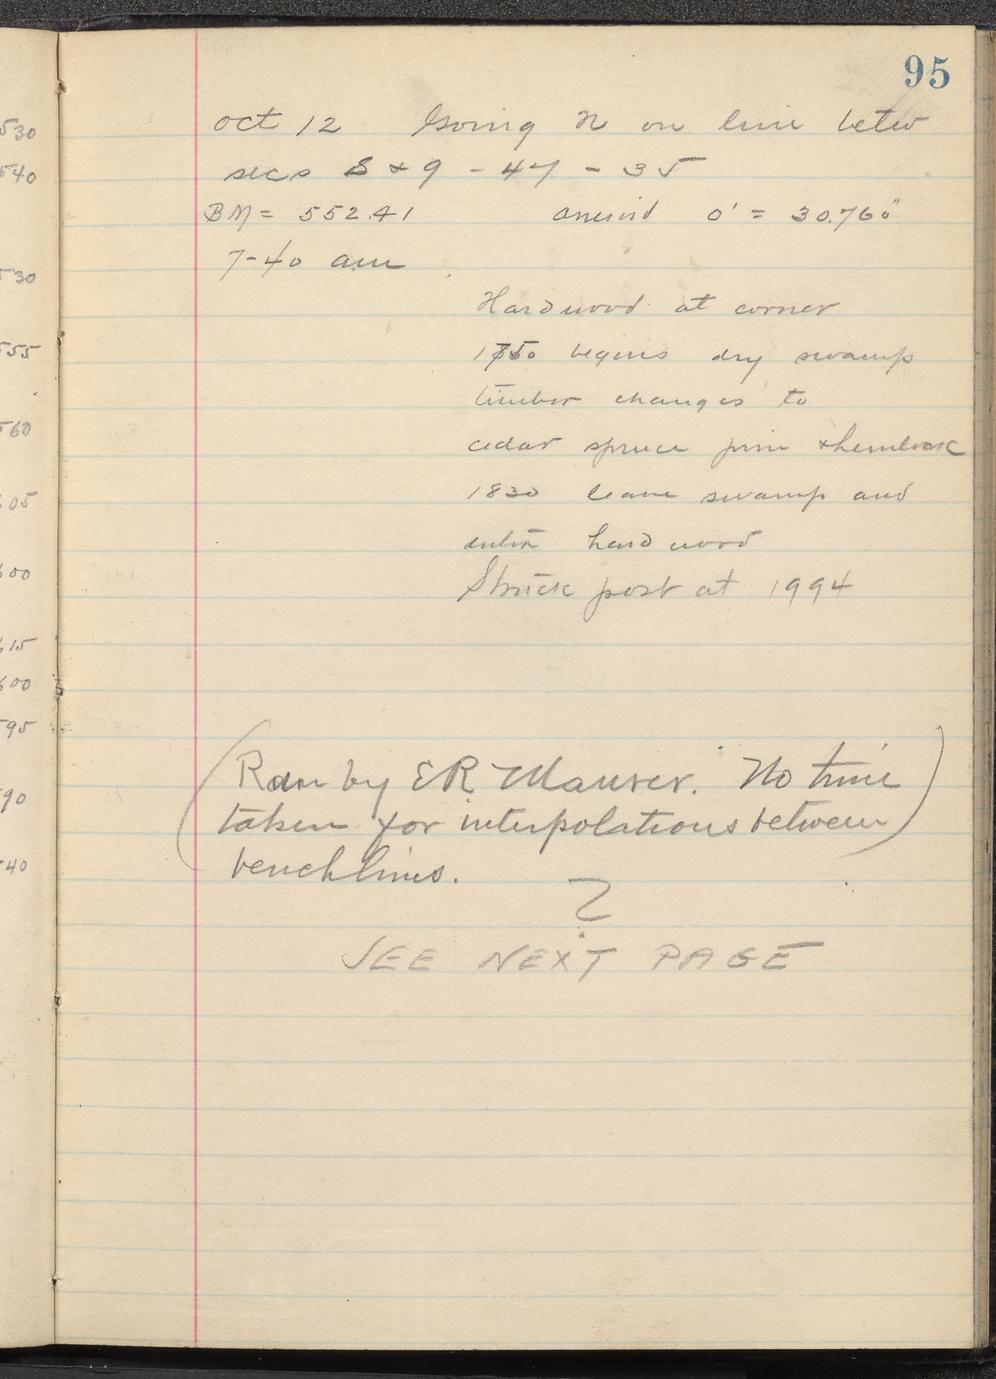 95
oct 12 Going N on line betw
secs 8 & 9 - 47 - 35
BM = 552.41 aneroid 0' = 30.760"
7-40 am
Hardwood at corner
1750 begins dry swamp
timber changes to
cedar spruce pine & hemlock
1830 leave swamp and
enter hard wood
Struck post at 1994
(Ran by ER Maurer. No time
taken for interpolations between
benchlines.)
?
SEE NEXT PAGE
530
540
530
555
560
605
600
615
600
595
590
540